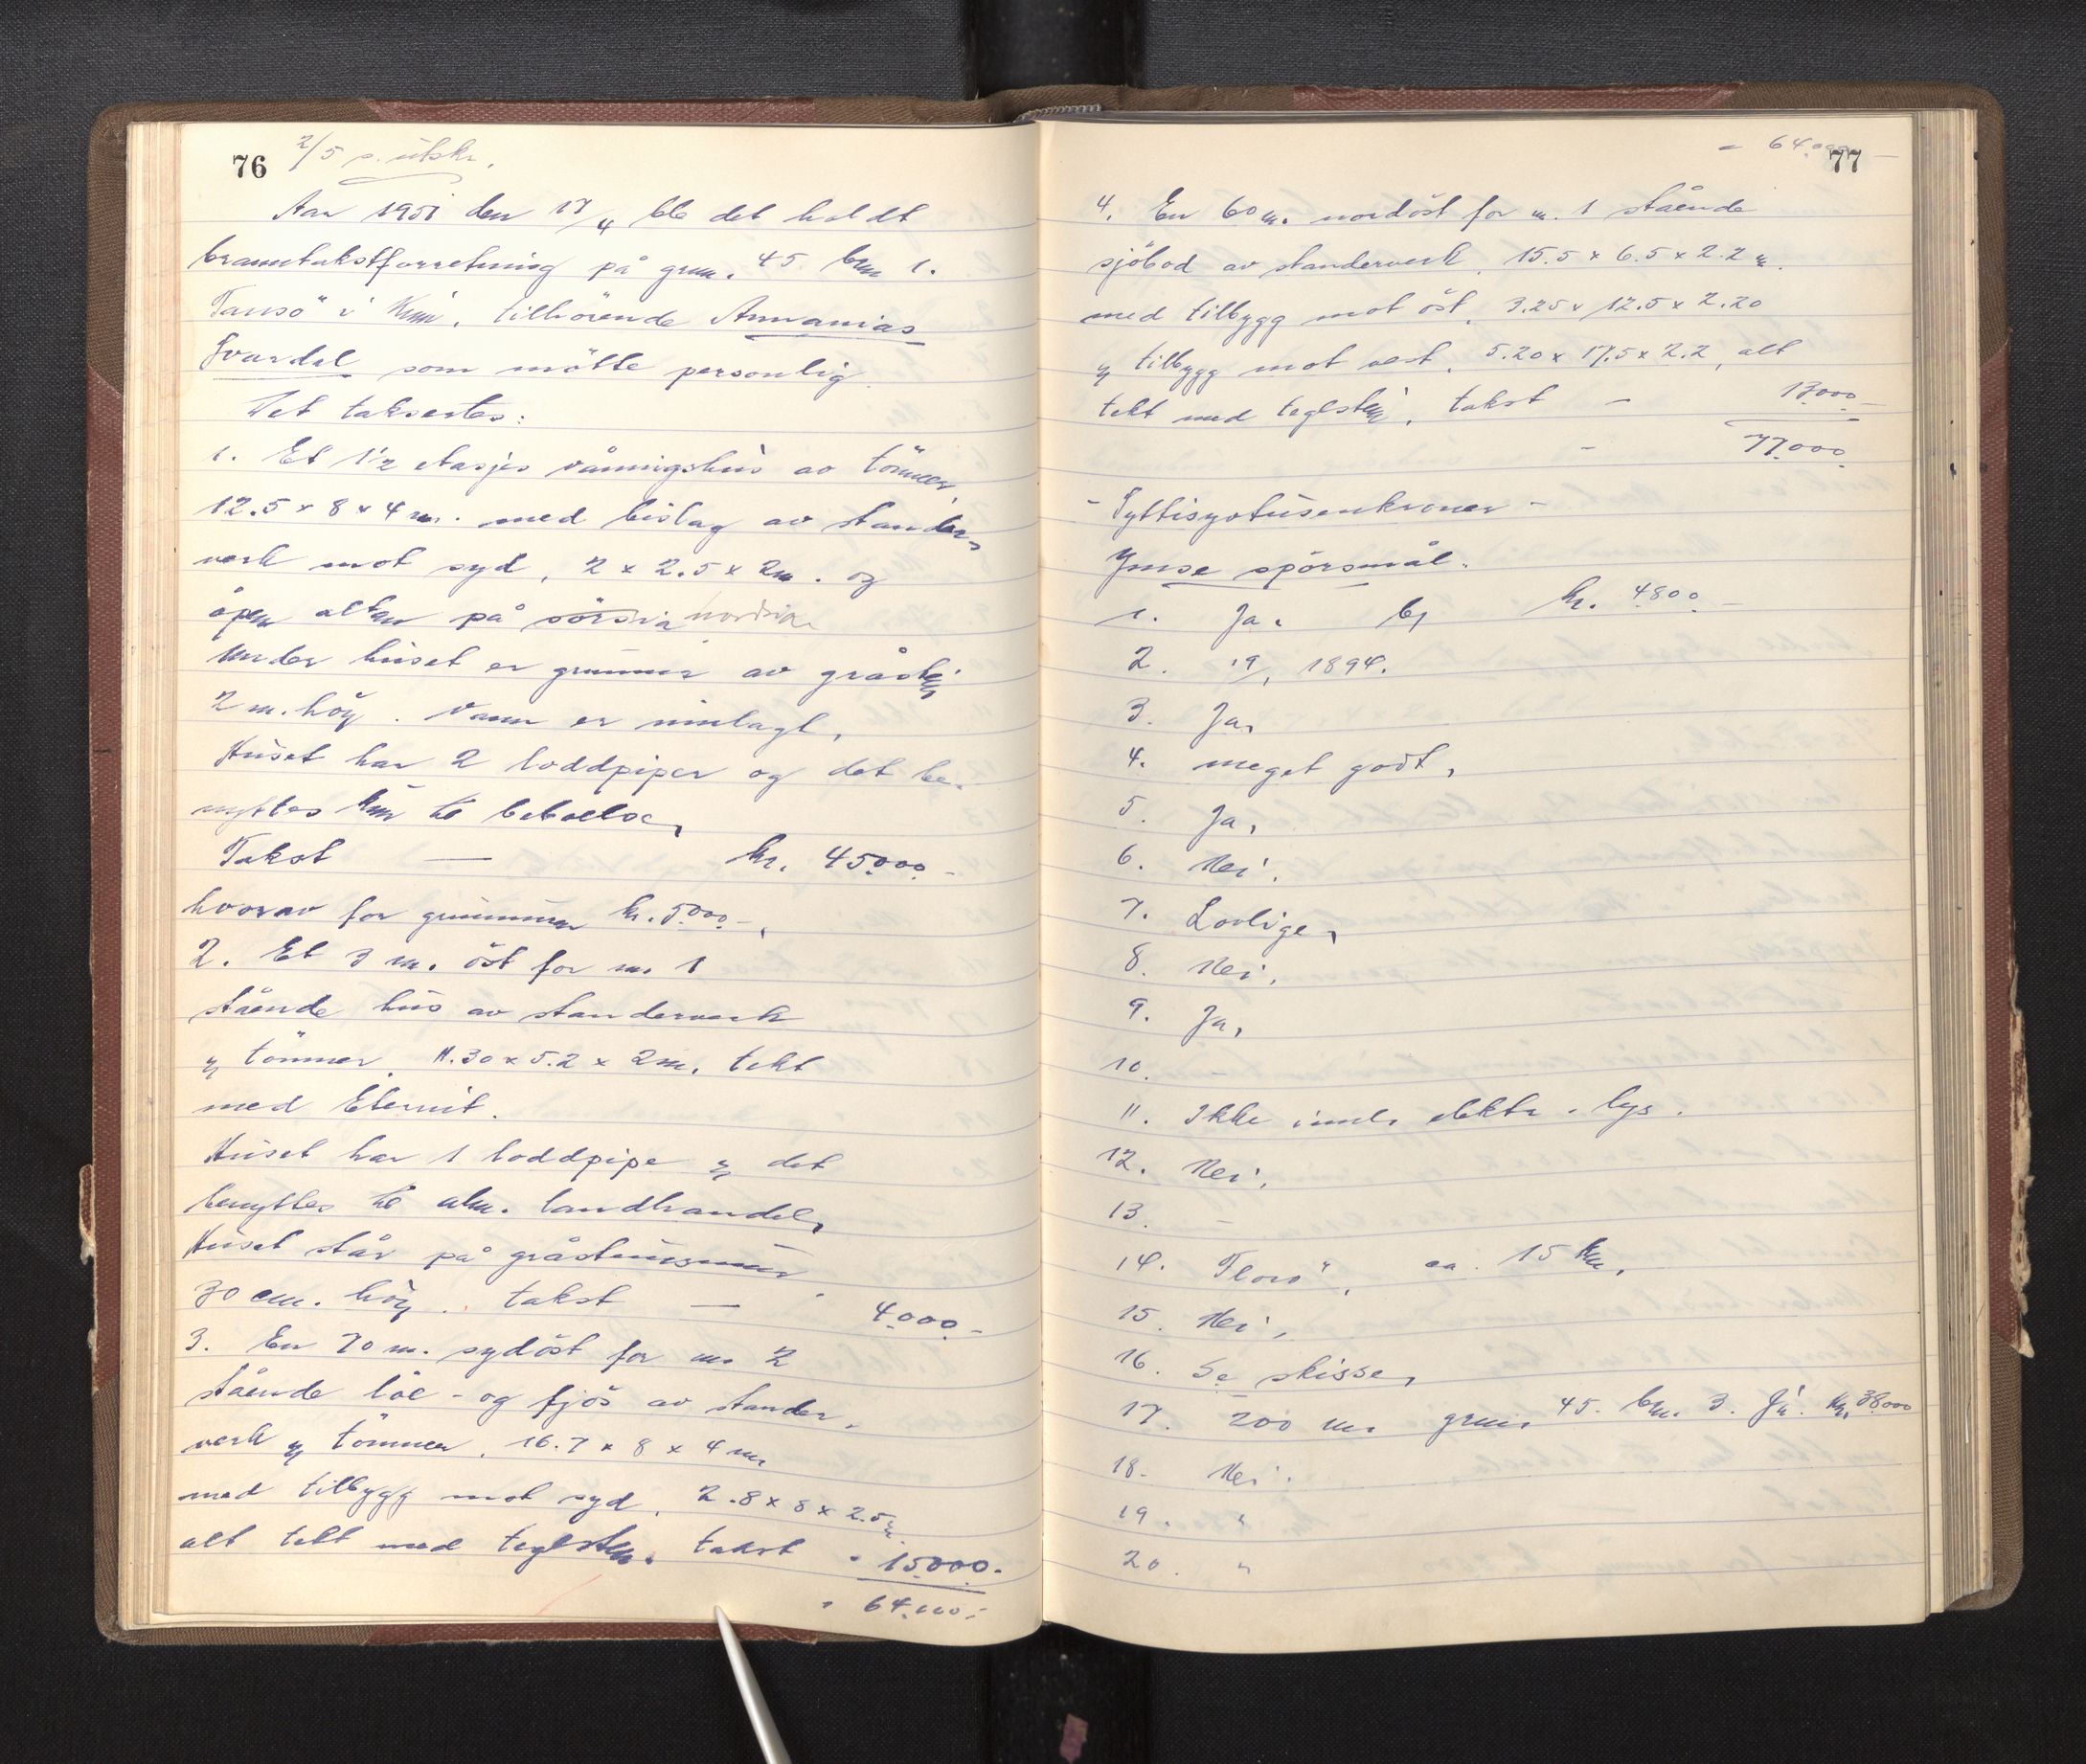 76
2/5 s. utskr.
Aar 1951 den 17/4 ble det holdt
branntakstforretning på grnn. 45 brnn 1.
Tansö i Kinn, tilhörende Annanias
Svardal som mötte personlig.
Det taksertes:
1. Et 1 1/2 etasjes våningshus av tömmer
12.5 x 8 x 4 m. med bislag av stander-
verk mot syd, 2 x 2.5 x 2 m. og
åpen altan på sörsia nordsia
Under huset er grunnmur av gråstein
2 m. höy. Vann er innlagt,
Huset har 2 loddpiper og det be-
nyttes kun til beboelse,
Takst — kr. 45.000.-
hvorav for grunnmur kr. 5.000.-,
2. Et 3 m. öst for nr. 1
stående hus av standerverk
og tömmer. 11.30 x 5.2 x 2 m. tekt
med Eternit.
Huset har 1 loddpipe og det
benyttes til alm. landhandel,
Huset står på gråsteinsmur
30 cm. höy. takst — 4.000.-
3. En 70 m. sydöst for nr. 2
stående löe- og fjös av stander-
verk og tömmer. 16.7 x 8 x 4 m.
med tilbygg mot syd, 2.8 x 8 x 2.5 m.
alt tekt med teglsten. takst " 15.000.-
" 64.000.-
77
- 64.000.-
4. En 60 m. nordöst for nr. 1 stående
sjöbod av standerverk, 15.5 x 6.5 x 2.2 m.
med tilbygg mot öst, 3.25 x 12.5 x 2.20
og tilbygg mot vest, 5.20 x 17.5 x 2.2, alt
tekt med teglstein, takst - 13.000.-
- 77.000.
- Syttisyvtusenkroner -
Ymse spörsmål.
1. Ja. bf kr. 4800.-
2. 19/1 1894.
3. Ja,
4. meget godt,
5. Ja,
6. Nei,
7. Lovlige,
8. Nei,
9. Ja,
10. -
11. Ikke innl. elektr. lys.
12. Nei,
13. -
14. Florö, ca. 15 km,
15. Nei,
16. Se skisse,
17. 200 m. grnn. 45. brnn. 3. Ja. kr. 38.000
18. Nei.
19. "
20. "